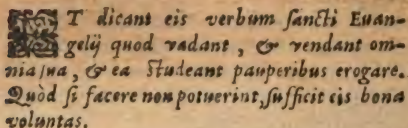 ET dicant eis verbum ſancti Euan-
gelij quod vadant, & vendant om-
nia ſua, & ea ſtudeant pauperibus erogare.
Quòd ſi facere non potuerint, ſufficit eis bona
voluntas.